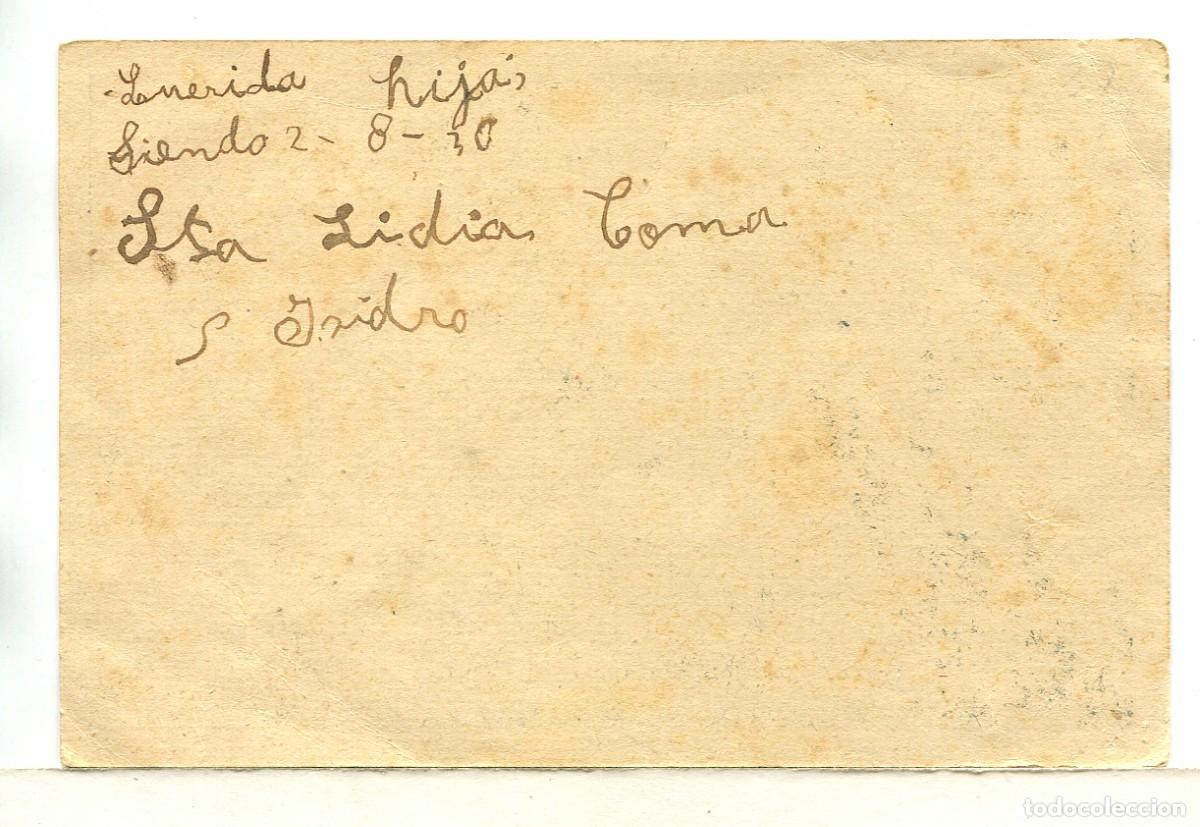 Querida hija,
Siendo 2 - 8 - 30
Sta Lidia Coma
S Isidro
todocoleccion